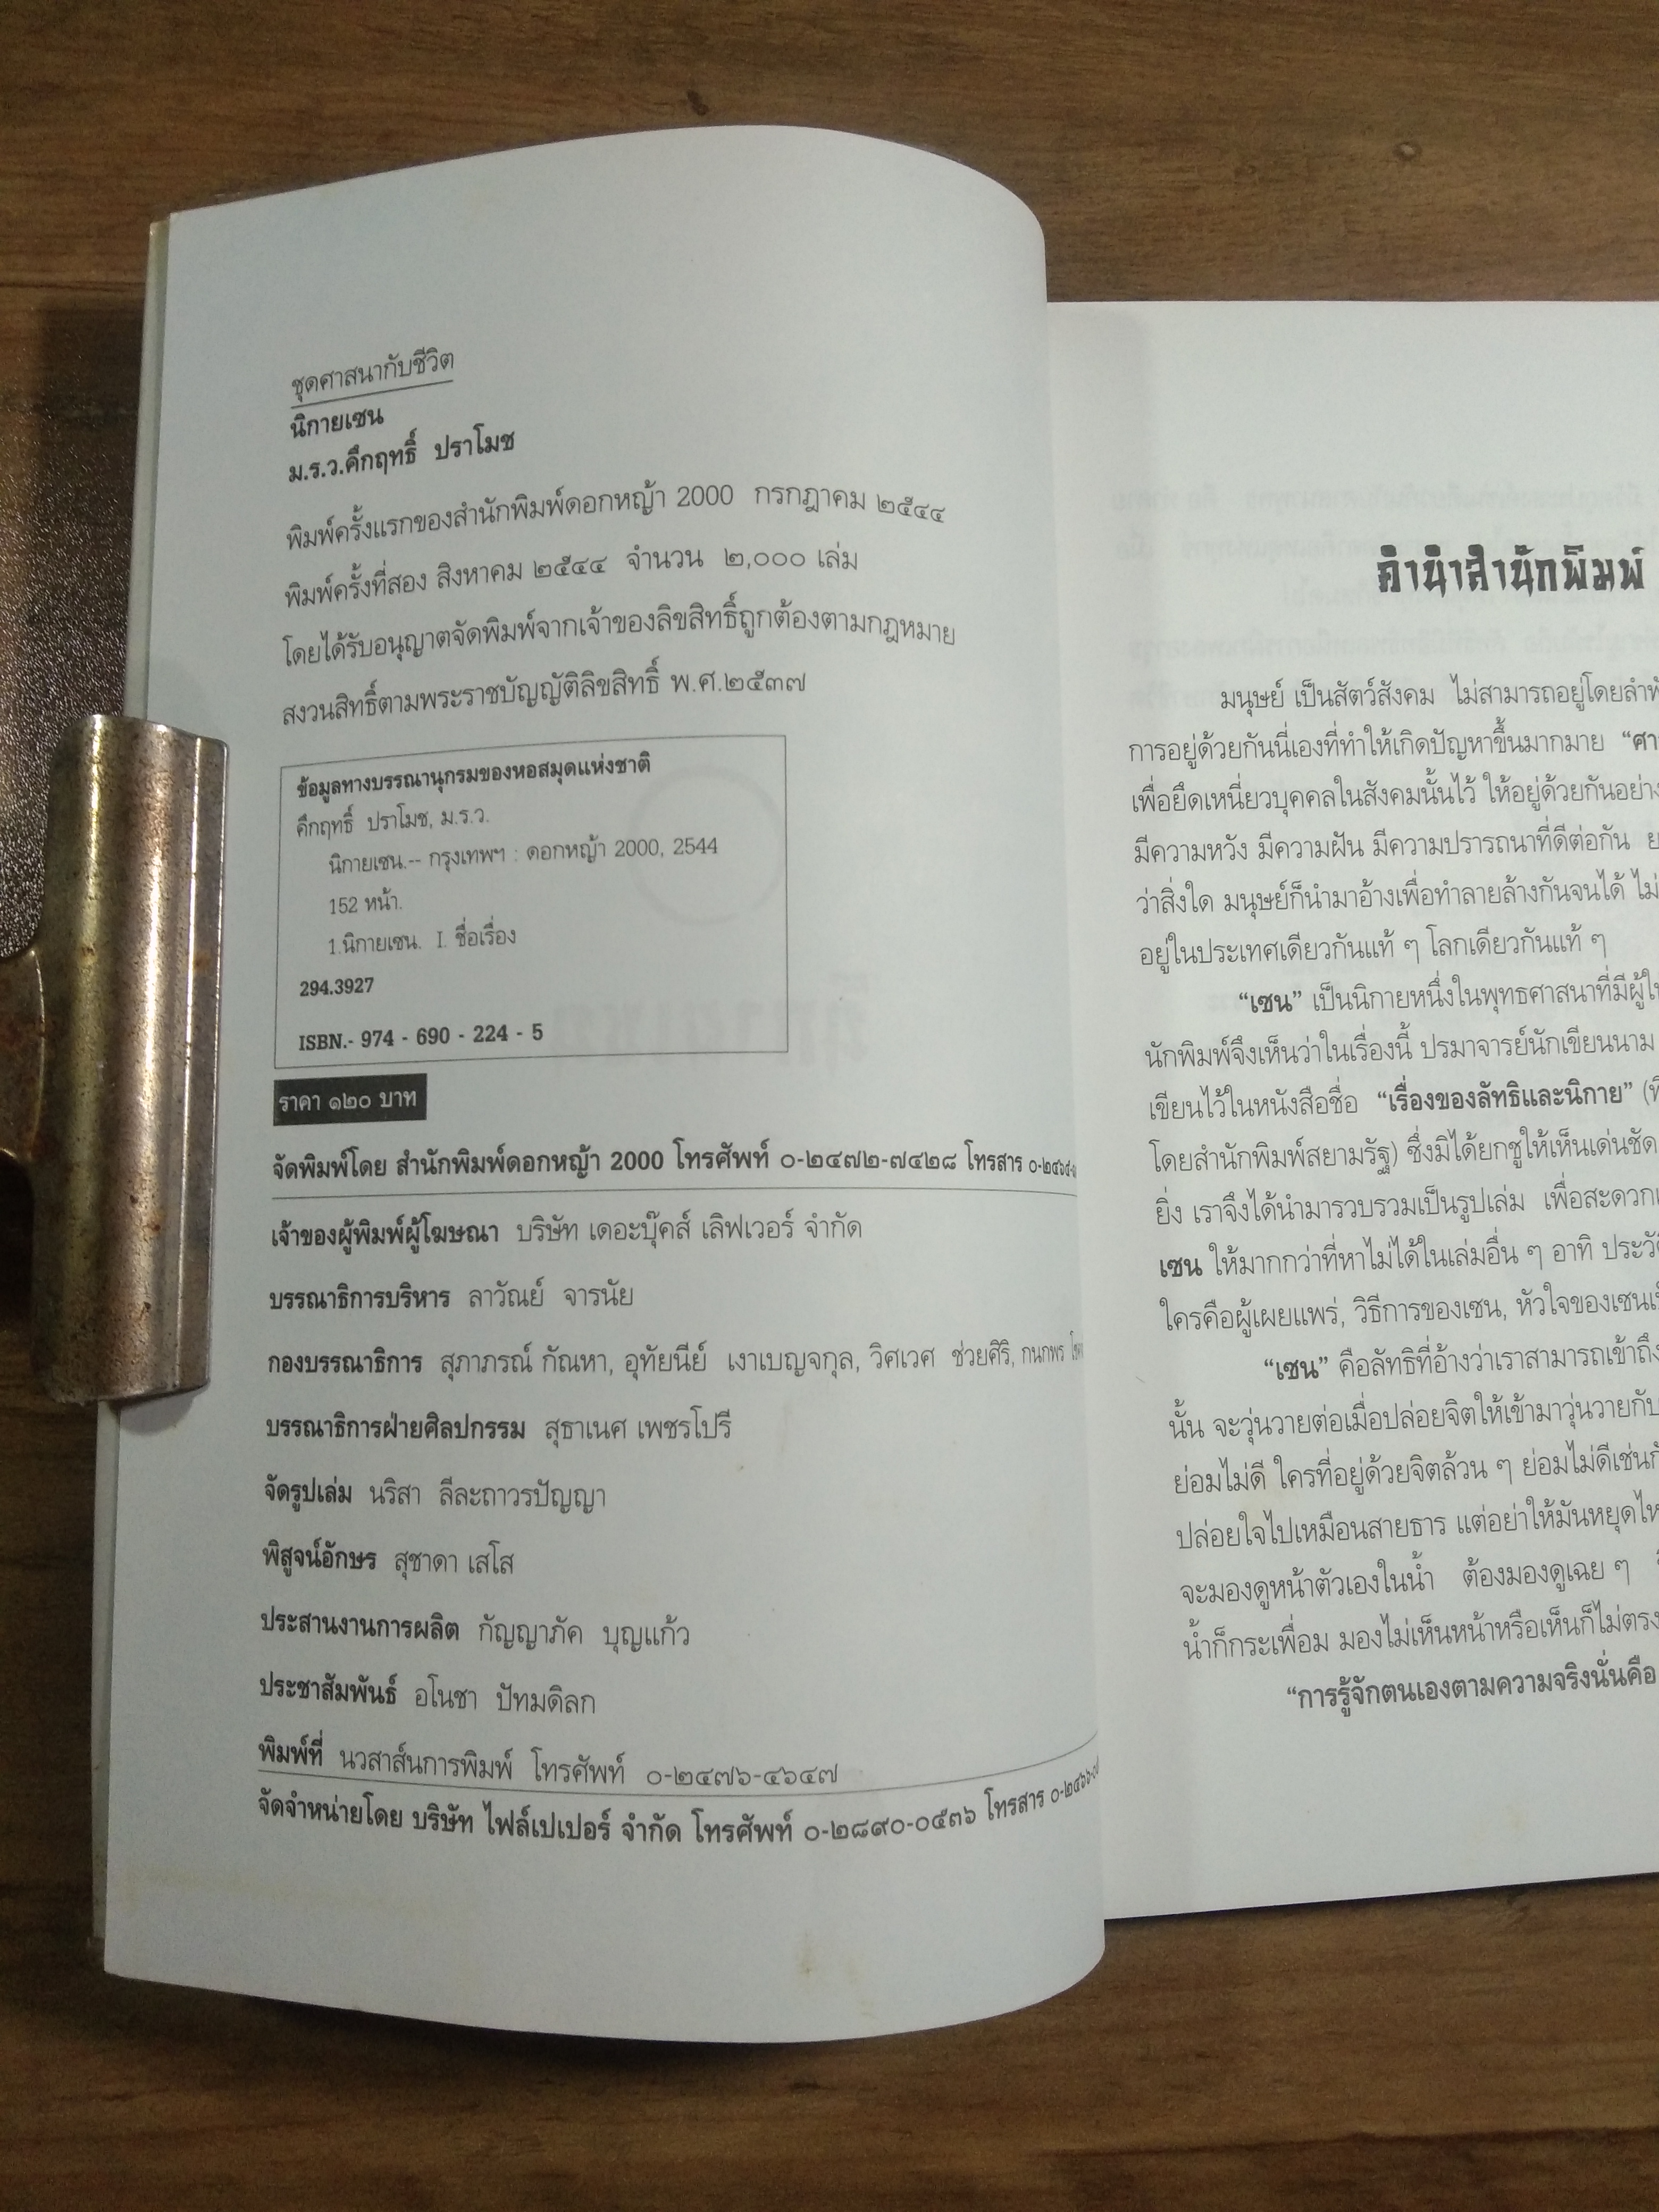 ชุดศาสนากับชีวิต
นิกายเซน
ม.ร.ว.คึกฤทธิ์ ปราโมช
พิมพ์ครั้งแรกของสำนักพิมพ์ดอกหญ้า 2000 กรกฎาคม ๒๕๔๔
พิมพ์ครั้งที่สอง สิงหาคม ๒๕๔๔ จำนวน ๒,๐๐๐ เล่ม
โดยได้รับอนุญาตจัดพิมพ์จากเจ้าของลิขสิทธิ์ถูกต้องตามกฎหมาย
สงวนสิทธิ์ตามพระราชบัญญัติลิขสิทธิ์ พ.ศ.๒๕๓๗
ข้อมูลทางบรรณานุกรมของหอสมุดแห่งชาติ
คึกฤทธิ์ ปราโมช, ม.ร.ว.
นิกายเซน.-- กรุงเทพฯ : ดอกหญ้า 2000, 2544
152 หน้า.
1.นิกายเซน. I. ชื่อเรื่อง
294.3927
ISBN.- 974 - 690 - 224 - 5
ราคา ๑๒๐ บาท
จัดพิมพ์โดย สำนักพิมพ์ดอกหญ้า 2000 โทรศัพท์ ๐-๒๔๗๒-๗๔๒๘ โทรสาร
เจ้าของผู้พิมพ์ผู้โฆษณา บริษัท เดอะบุ๊คส์ เลิฟเวอร์ จำกัด
บรรณาธิการบริหาร ลาวัณย์ จารนัย
กองบรรณาธิการ สุภาภรณ์ กัณหา, อุทัยนีย์ เงาเบญจกุล, วิศเวศ ช่วยศิริ, กนกพร
บรรณาธิการฝ่ายศิลปกรรม สุธาเนศ เพชรโปรี
จัดรูปเล่ม นริสา ลีละถาวรปัญญา
พิสูจน์อักษร สุชาดา เสโส
ประสานงานการผลิต กัญญาภัค บุญแก้ว
ประชาสัมพันธ์ อโนชา ปัทมดิลก
พิมพ์ที่ นวสาส์นการพิมพ์ โทรศัพท์ ๐-๒๔๗๖-๔๖๔๗
จัดจำหน่ายโดย บริษัท ไฟล์เปเปอร์ จำกัด โทรศัพท์ ๐-๒๘๙๐-๐๕๓๖ โทรสาร
คำนำสำนักพิมพ์
มนุษย์ เป็นสัตว์สังคม ไม่สามารถอยู่โดยลำพัง
การอยู่ด้วยกันนี่เองที่ทำให้เกิดปัญหาขึ้นมากมาย
เพื่อยึดเหนี่ยวบุคคลในสังคมนั้นไว้ ให้อยู่ด้วยกันอย่าง
มีความหวัง มีความฝัน มีความปรารถนาที่ดีต่อกัน
ว่าสิ่งใด มนุษย์ก็นำมาอ้างเพื่อทำลายล้างกันจนได้ ไม่
อยู่ในประเทศเดียวกันแท้ ๆ โลกเดียวกันแท้ ๆ
“เซน” เป็นนิกายหนึ่งในพุทธศาสนาที่มีผู้
นักพิมพ์จึงเห็นว่าในเรื่องนี้ ปรมาจารย์นักเขียนนาม
เขียนไว้ในหนังสือชื่อ “เรื่องของลัทธิและนิกาย”
โดยสำนักพิมพ์สยามรัฐ) ซึ่งมิได้ยกชูให้เห็นเด่นชัด
ยิ่ง เราจึงได้นำมารวบรวมเป็นรูปเล่ม เพื่อสะดวก
เซน ให้มากกว่าที่หาไม่ได้ในเล่มอื่น ๆ อาทิ
ใครคือผู้เผยแพร่, วิธีการของเซน, หัวใจของเซน
“เซน” คือลัทธิที่อ้างว่าเราสามารถเข้าถึง
นั้น จะวุ่นวายต่อเมื่อปล่อยจิตให้เข้ามาวุ่นวายกับ
ย่อมไม่ดี ใครที่อยู่ด้วยจิตล้วน ๆ ย่อมไม่ดีเช่น
ปล่อยใจไปเหมือนสายธาร แต่อย่าให้มันหยุด
จะมองดูหน้าตัวเองในน้ำ ต้องมองดูเฉย ๆ
น้ำก็กระเพื่อม มองไม่เห็นหน้าหรือเห็นก็ไม่ตรง
“การรู้จักตนเองตามความจริงนั่นคือ